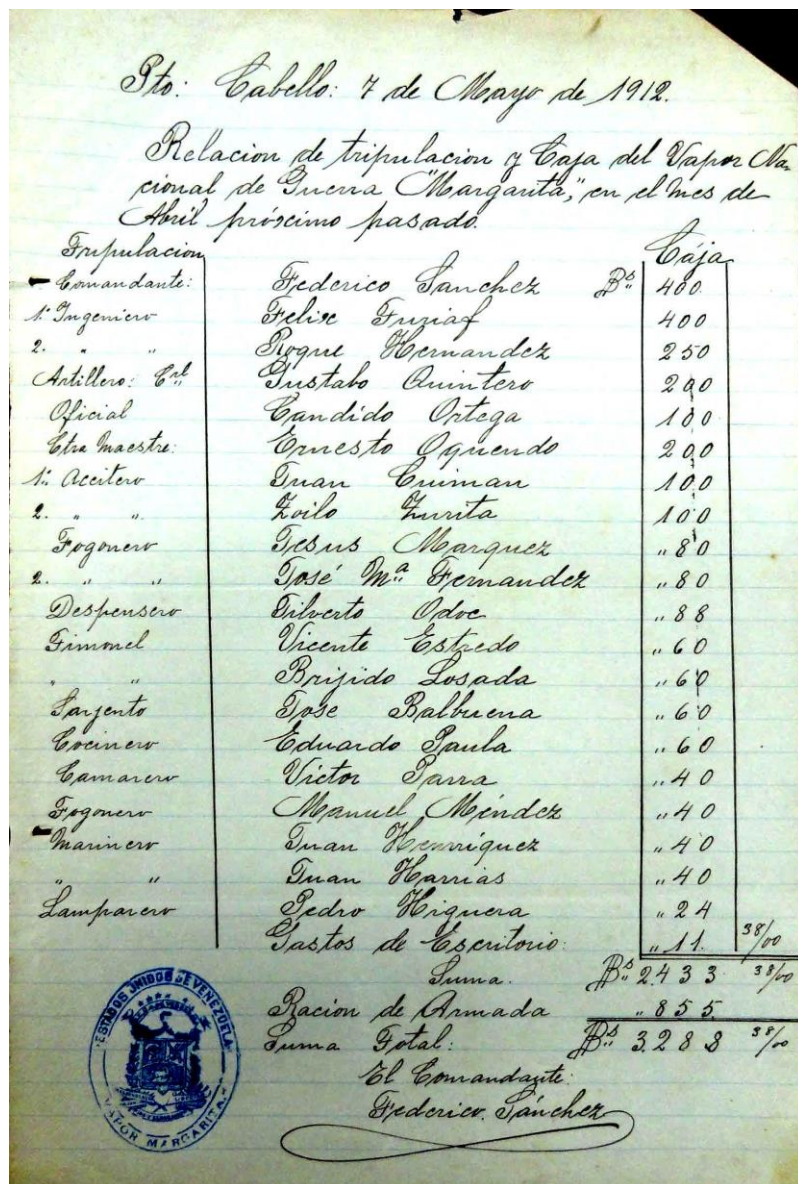 Pto: Cabello: 7 de Mayo de 1912.
Relacion de tripulacion y Caja del Vapor Na-
cional de Guerra "Margarita," en el mes de
Abril próximo pasado.
Tripulacion Caja
Comandante: Federico Sanchez Bs. 400.
1º Ingeniero Felix 400
2. " " Roque Hernandez 250
Artillero: Cnl Gustabo Quintero 200
Oficial Candido Ortega 100
Ctra Maestre: Ernesto Oquendo 200
1º Aceitero Juan 100
2. " " Zoilo Zurita 100
Fogonero Jesus Marquez "80
2. " " José Mª Fernandez "80
Despensero Gilverto Odoc "88
Timonel Vicente Estredo "60
" " Brijido Losada "60
Sarjento Jose Balbuena "60
Cocinero Eduardo Paula "60
Camarero Victor Parra "40
Fogonero Manuel Méndez "40
Marinero Juan Henríquez "40
" " Juan Harrias "40
Lamparero Pedro Higuera "24
Gastos de Escritorio: "11. 38/00
Suma. Bs. 2433 38/00
Racion de Armada "855.
Suma Total: Bs. 3.288 38/00
El Comandante:
Federico. Sánchez
ESTADOS UNIDOS DE VENEZUELA
VAPOR MARGARITA